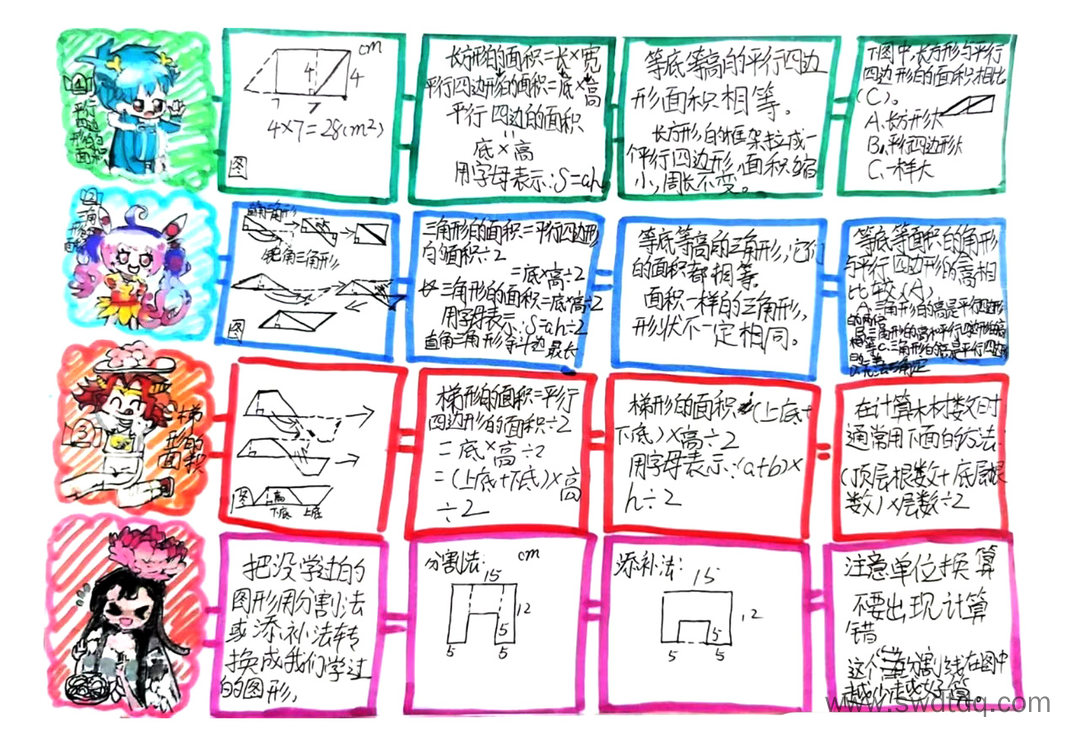 1
平行
四边
形的
面积
cm
4
4
7
7
4×7=28(m²)
图
长方形的面积=长×宽
平行四边形的面积=底×高
平行四边的面积
=
底×高
用字母表示:S=ah
等底等高的平行四边
形面积相等。
长方形的框架拉成一
个平行四边形,面积缩
小,周长不变。
下图中长方形与平行
四边形的面积相比
(C)。
A.长方形大
B.平行四边形大
C.一样大
2
三角
形的
面积
直角三角形
钝角三角形
图
三角形的面积=平行四边形
的面积÷2
=底×高÷2
三角形的面积=底×高÷2
用字母表示:S=ah÷2
直角三角形斜边
最长
等底等高的三角形,它们
的面积都相等
面积一样的三角形,
形状不一定相同。
等底等面积的角形
与平行四边形的高相
比较(A)
A.三角形的高是平行四边形
的两倍
C.三角形的高是平行四边
3
梯
形的
面积
图
高
下底
上底
梯形的面积=平行
四边形的面积÷2
=底×高÷2
=(上底+下底)×高
÷2
梯形的面积=(上底+
下底)×高÷2
用字母表示:(a+b)×
h÷2
在计算木材数时
通常用下面的方法:
(顶层根数+底层根
数)×层数÷2
把没学过的
图形用分割法
或添补法转
换成我们学过
的图形,
分割法:
cm
15
12
5
5
5
添补法:
15
12
5
5
5
注意单位换算
不要出现计算
错
这个分割线在图中
越少越好算。
www.swdtdq.com